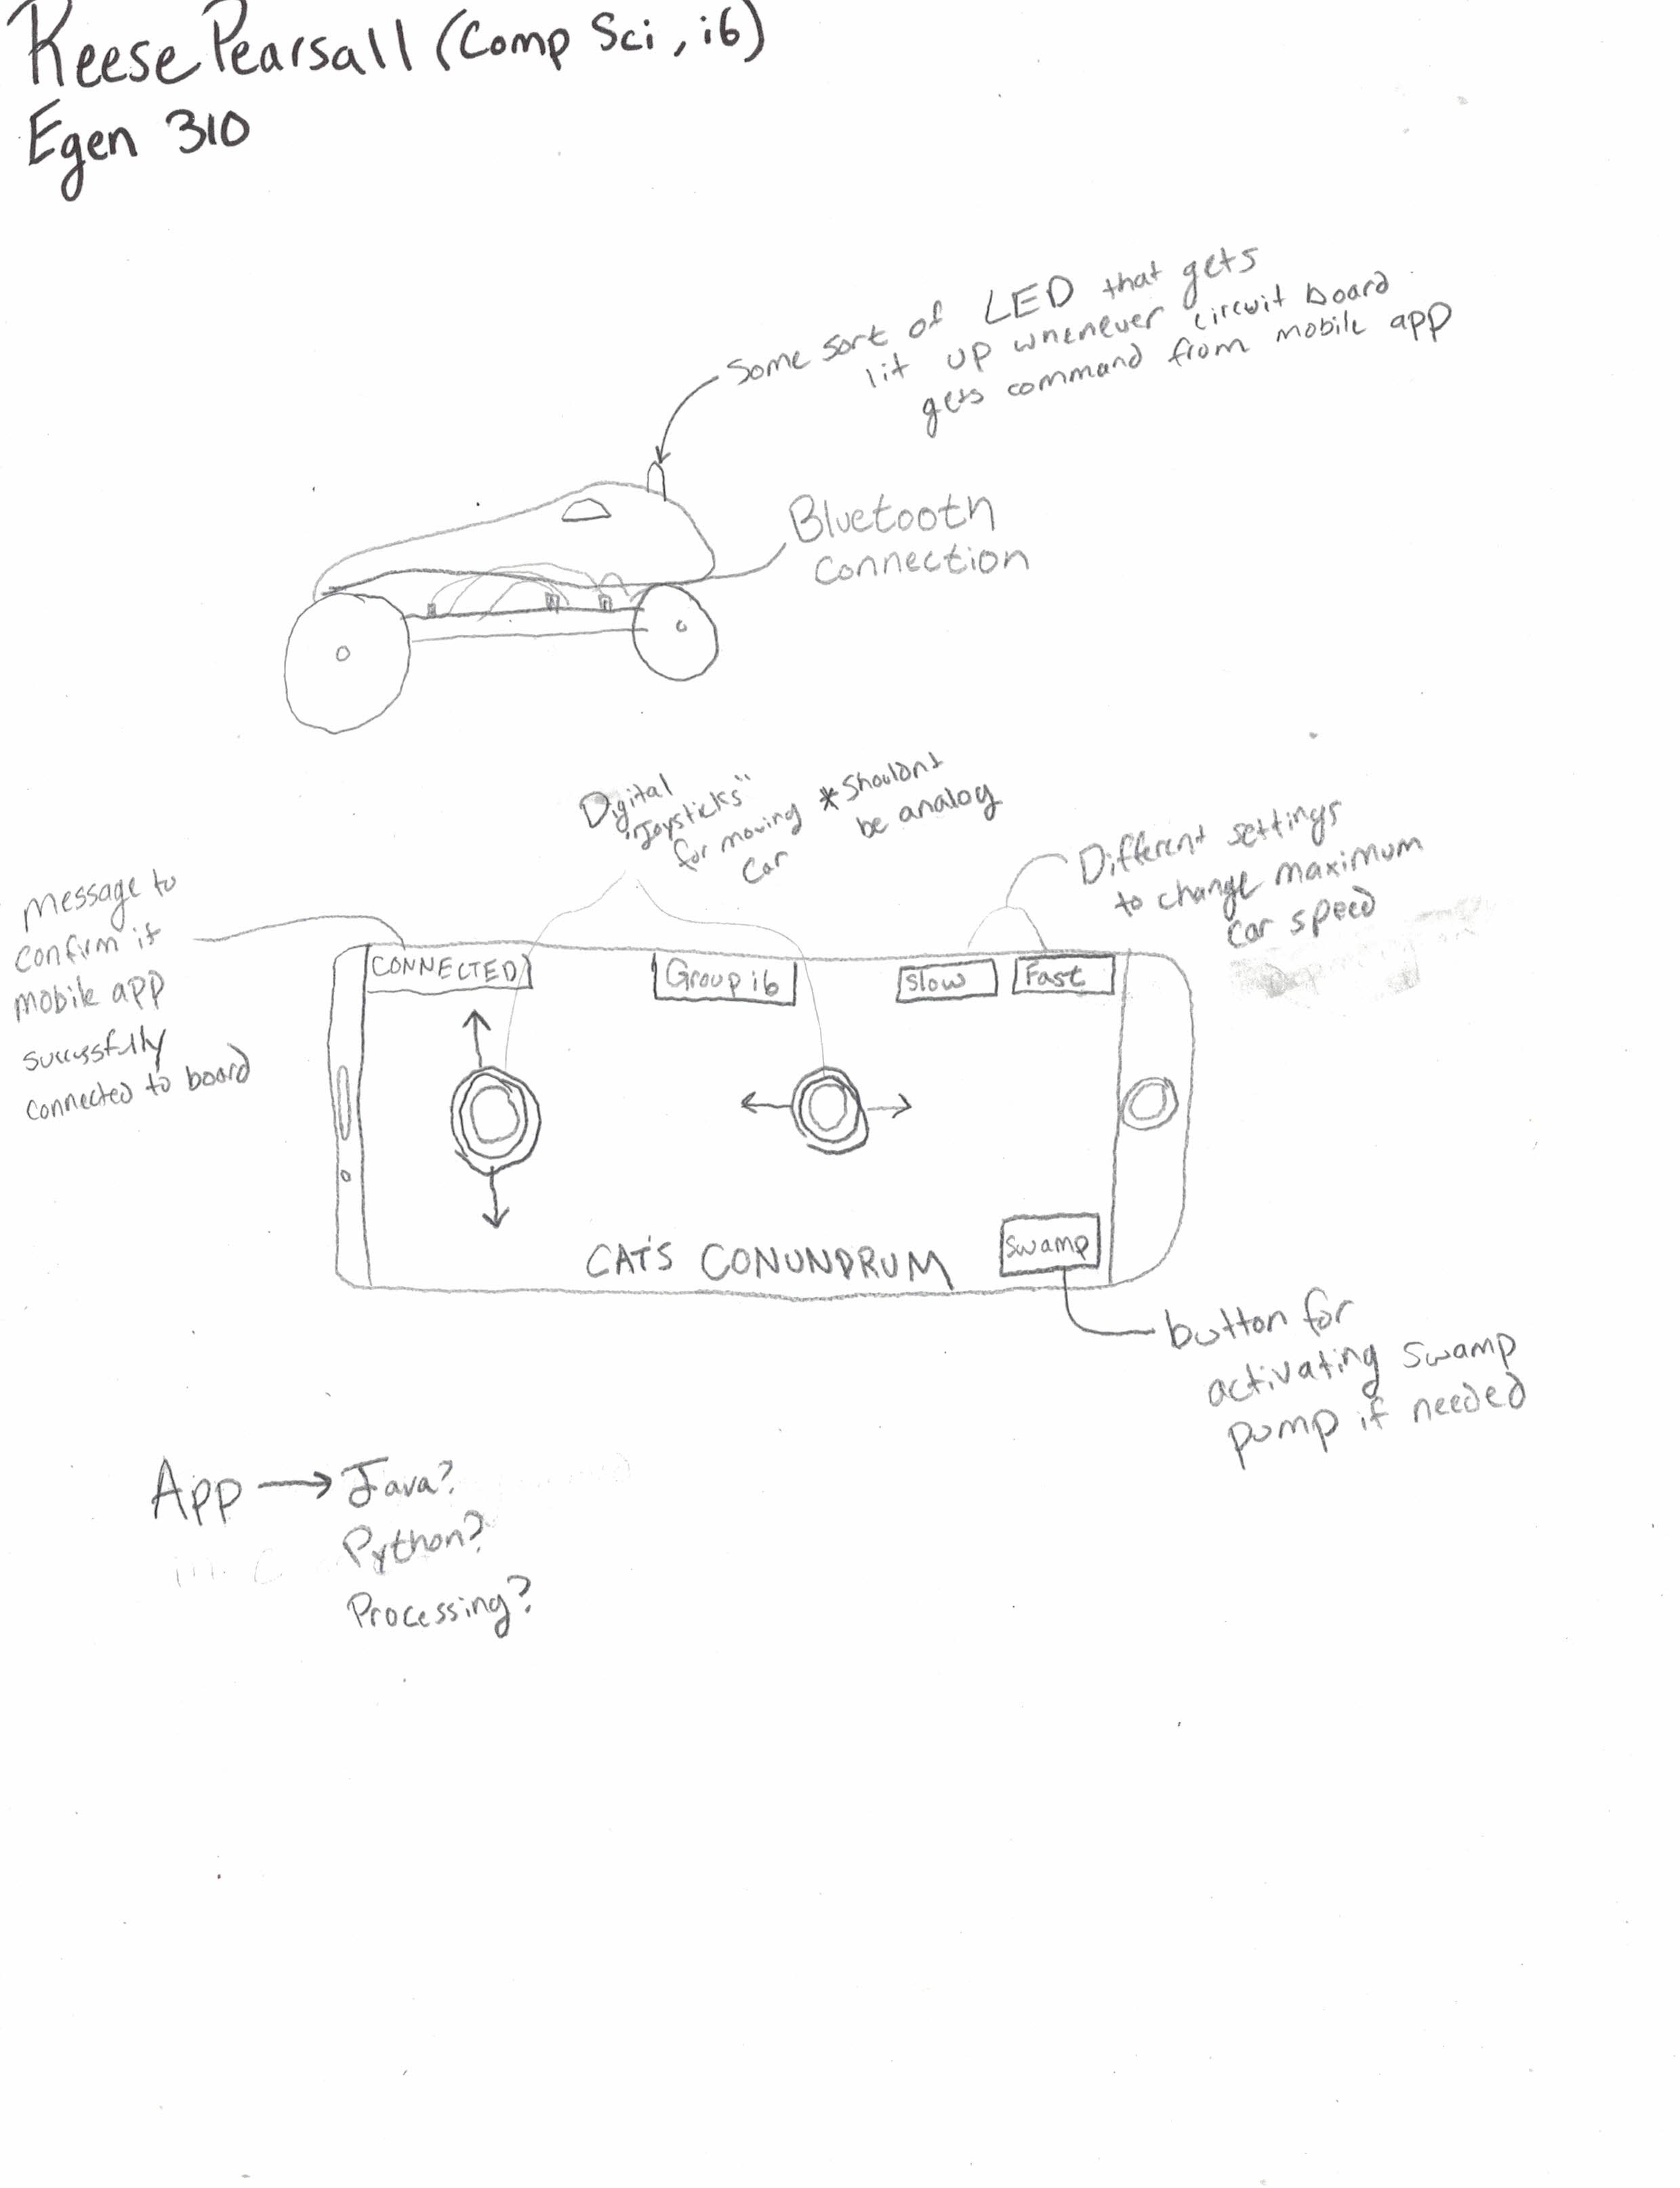 Reese Pearsall (Comp Sci, i6)
Egen 310
Some sort of LED that gets
lit up whenever circuit board
gets command from mobile app
Bluetooth
Connection
Digital
"Joysticks"
for moving
Car
*Shouldnt
be analog
Different settings
to change maximum
car speed
message to
confirm if
mobile app
successfully
connected to board
CONNECTED
Group i6
Slow
Fast
CATS CONUNDRUM
Swamp
button for
activating swamp
pump if needed
App → Java?
Python?
Processing?